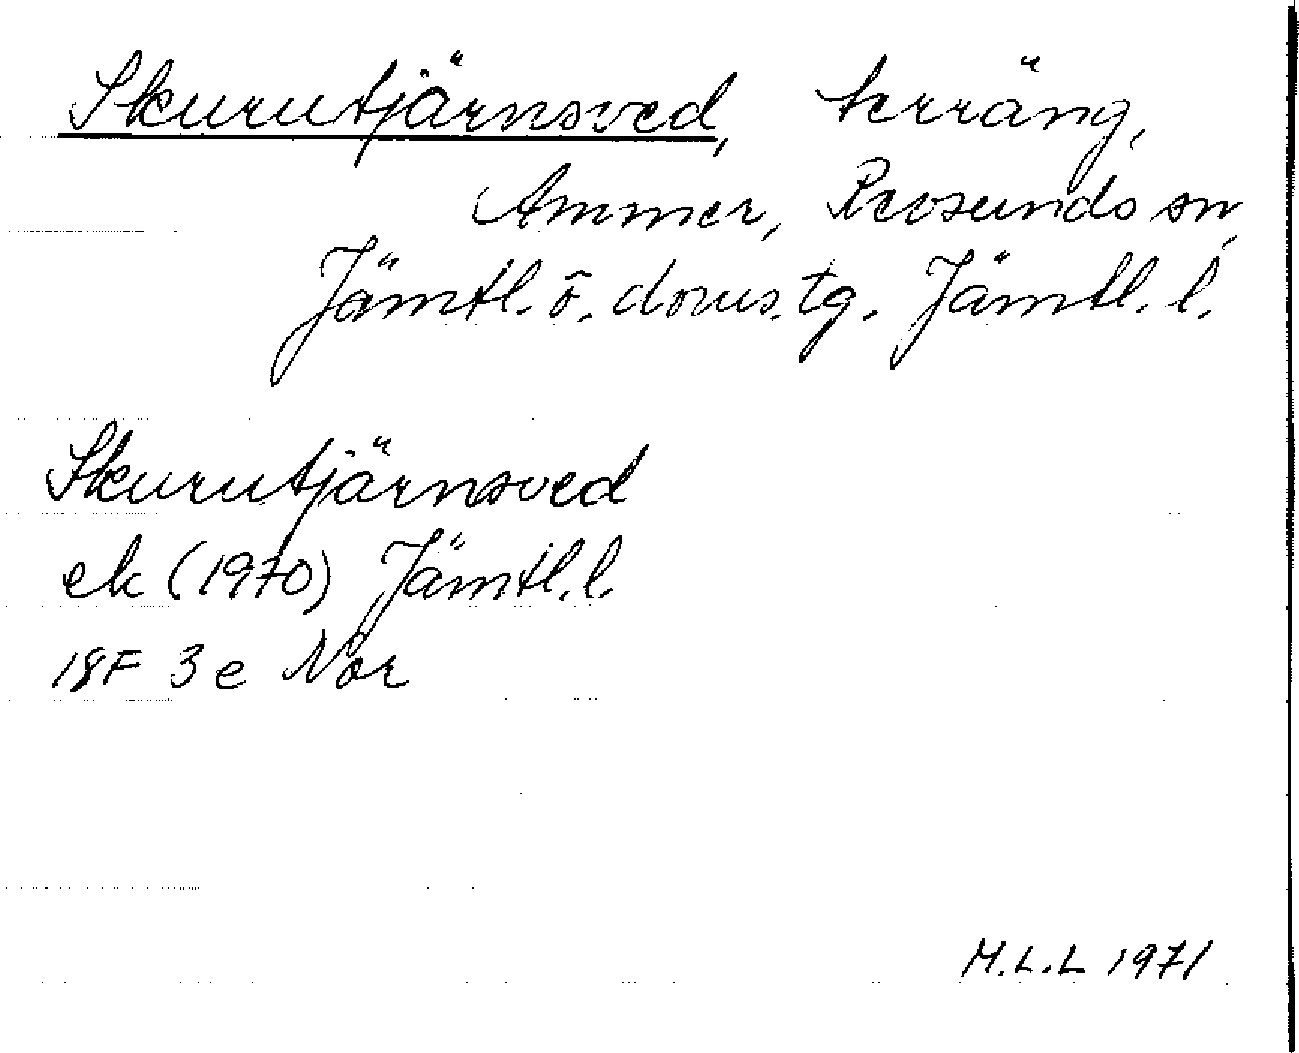 Skurutjärnsved, terräng,
Ammer, Revsunds sn,
Jämtl. ö. doms.tg. Jämtl. l.
Skurutjärnsved
ek (1970) Jämtl. l.
18F 3e Nor
M.L.L 1971